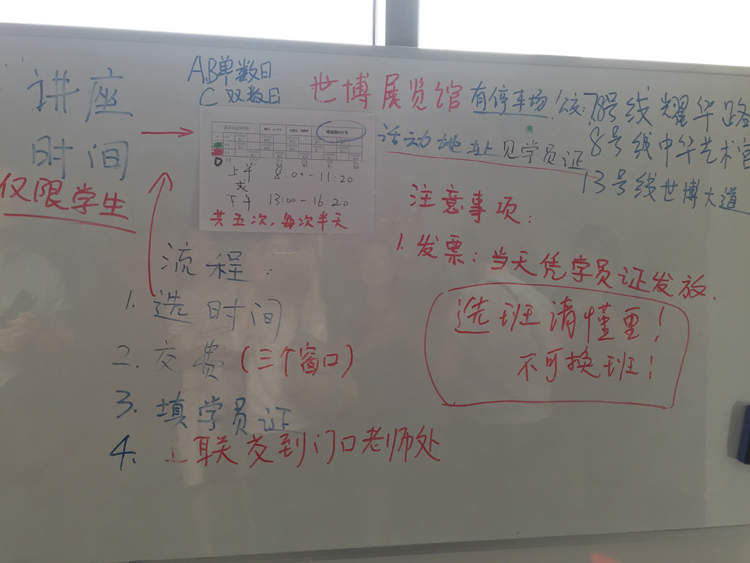 讲座
时间
仅限学生
AB单数日
C 双数日
上午 8:00-11:20
下午 13:00-16:20
共五次,每次半天
世博展览馆 有停车场
7.8号线耀华路
8号线中华艺术宫
13号线世博大道
活动地址见学员证
流程:
1. 选时间
2. 交费(三个窗口)
3. 填学员证
4. 联交到门口老师处
注意事项:
1. 发票:当天凭学员证发放.
选班请慬重!
不可换班!